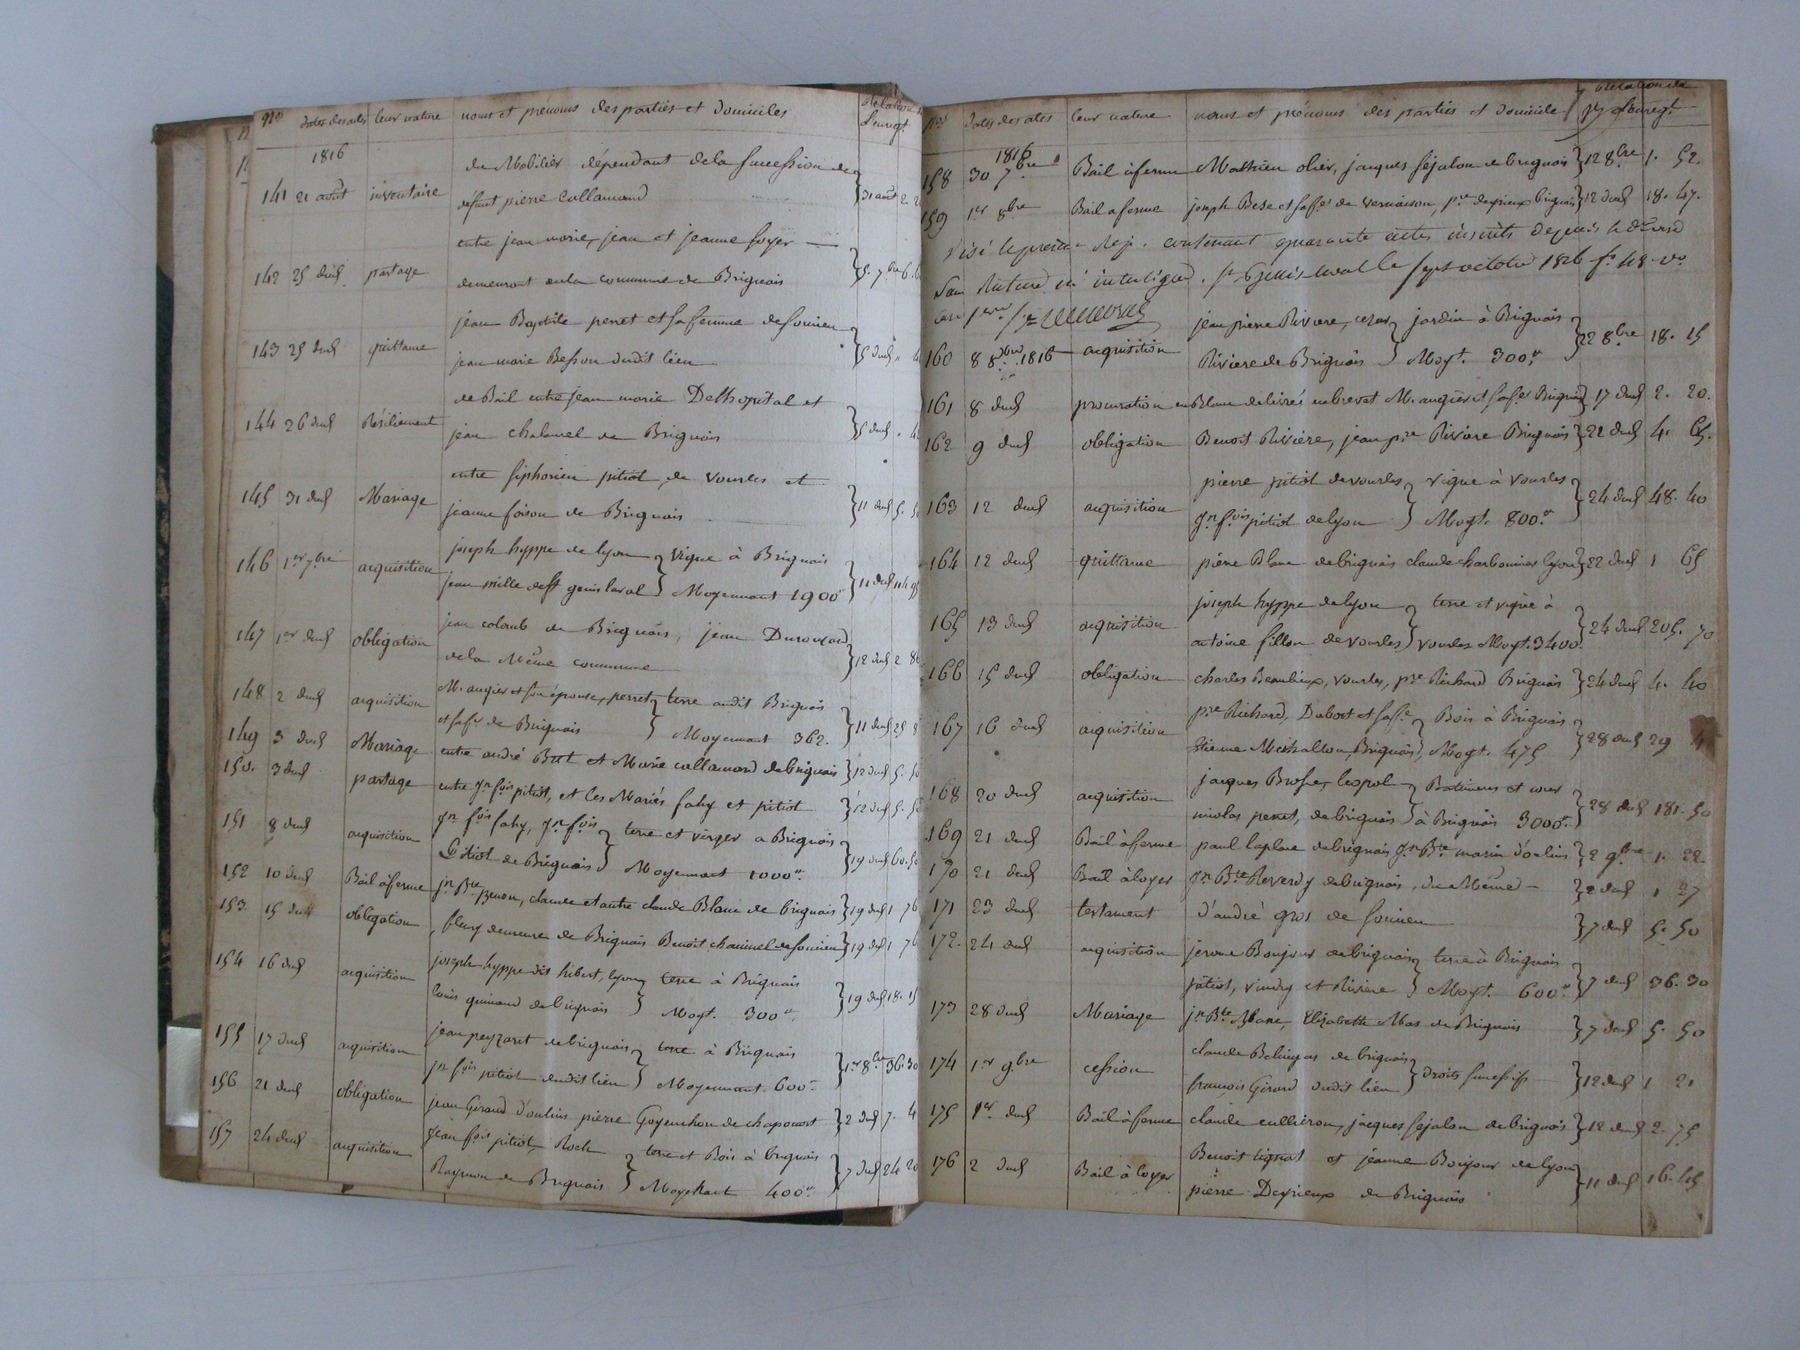 nos dates des actes leur nature noms et prénoms des parties et domiciles Relation de l'enregt.
1816
141 21 août inventaire du Mobilier dépendant de la succession de
défunt pierre Collamand } 31 août 2. 2
142 25 dud. partage entre jean marie, jean et jeanne foyer
demeurant en la commune de Brignais } 5. 7bre 6. 6
143 25 dud quittance jean Baptiste perret et sa femme de soucieu
jean marie Besson dudit lieu } 5 dud
144 26 dud Résiliement de Bail entre jean marie Delhopital et
jean chalamel de Brignais } 5 dud
145 31 dud Mariage entre siphorien pitiot de vourles et
jeanne foison de Brignais } 11 dud 5. 5
146 1er 7bre acquisition joseph hyppe de lyon } vigne à Brignais
jean mille de St genis laval } Moyennant 1900 } 11 dud 114 95
147 1er dud obligation jean colomb de Brignais, jean
de la Même commune } 12 dud 2 86
148 2 dud acquisition M. augier et son épouse, perret } terre audit Brignais
et sa fe de Brignais } Moyennant 362. } 11 dud 25
149 3 dud Mariage entre andré But et Marie collamand de brignais } 12 dud 5. 50
150. 3 dud partage entre jn fois pitiot, et les Mariés fahy et pitiot } 12 dud 5. 5
151 8 dud acquisition jn fois fahy, jn fois } terre et verger a Brignais
Pitiot de Brignais } Moyennant 1000 } 19 dud 60. 50
152 10 dud Bail à ferme jn Bte, claude et autre claude Blanc de brignais } 19 dud 1 76
153. 15 dud obligation fleury demeure de Brignais Benoit chaumel de soucieu } 19 dud 1 76
154 16 dud acquisition joseph hyppe dit hibert, lyon } terre à Brignais
louis guinand de brignais } Moyt. 300 } 19 dud 18. 15
155 17 dud acquisition jean peyzaret de brignais } terre à Brignais
jn fois pitiot dudit lieu } Moyennant 600 } 1er 8bre 36. 30
156 21 dud obligation jean Giraud d'oulins pierre Goyenchon de chaponost } 2 dud 7. 4
157 24 dud acquisition jean fois pitiot, Roch } terre et Bois à brignais
Raymon de Brignais } Moyennant 400 } 7 dud 24 20
nos dates des actes leur nature noms et prénoms des parties et domicile Relation de l'enregt.
1816
158 30 7bre Bail à ferme Mathieu olier, jacques séjalon de brignais } 12 8bre 1. 52.
159 1er 8bre Bail a ferme joseph Bese et sa fe de vernaison, pre deyrieux brignais } 12 dud 18. 47.
Visé le présent Rép. contenant quarante actes inscrits depuis le dernier
octobre 1816 fo 48 vo
160 8 8bre 1816 acquisition jean pierre Riviere, cesar } jardin à Brignais
Riviere de Brignais } Moyt. 300 } 22 8bre 18. 15
161 8 dud procuration en Blanc delivrée en brevet M. augier et sa fe Brignais } 17 dud 2. 20.
162 9 dud obligation Benoit Riviere, jean pre Riviere Brignais } 22 dud 4. 65.
163 12 dud acquisition pierre pitiot de vourles } vigne à Vourles
jn fois pitiot de lyon } Moyt. 800 } 24 dud 48. 40
164 12 dud quittance pierre Blanc de brignais claude charbonnier lyon } 22 dud 1 65
165 13 dud acquisition joseph hyppe de lyon } terre et vigne à
antoine fillon de vourles } vourles Moyt. 3400 } 24 dud 205. 70
166 15 dud obligation charles Beaulieux, vourles, pre Richard Brignais } 24 dud 4. 40
167 16 dud acquisition pre Richard, Dubost et sa fe } Bois à Brignais
Etienne Michallon, Brignais } Moyt. 475 } 28 dud 29
168 20 dud acquisition jacques Brosse, leopol } Batiments et cour
nicolas perret, de brignais } à Brignais 3000 } 28 dud 181. 50
169 21 dud Bail à ferme paul laplace de brignais jn Bte marin d'oulins } 2 9bre 1. 22.
170 21 dud Bail à loyer jn Bte Reverdy de brignais, du Même } 2 dud 1 27
171 23 dud testament d'andré gros de soucieu } 7 dud 5. 50
172. 24 dud acquisition jerome Bonjour de brignais } terre à Brignais
pitiot, vindry et Riviere } Moyt. 600 } 7 dud 36. 30
173 28 dud Mariage jn Bte, Elizabeth Mas de Brignais } 7 dud 5. 50
174 1er 9bre cession claude Belingas de brignais } droits successifs
françois Girard dudit lieu } 12 dud 1 21
175 1er dud Bail à ferme claude cullieron, jacques séjalon de brignais } 12 dud 2. 75
176 2 dud Bail à loyer Benoit lignat et jeanne Bonjour de lyon
pierre Deyrieux de Brignais } 11 dud 16. 45